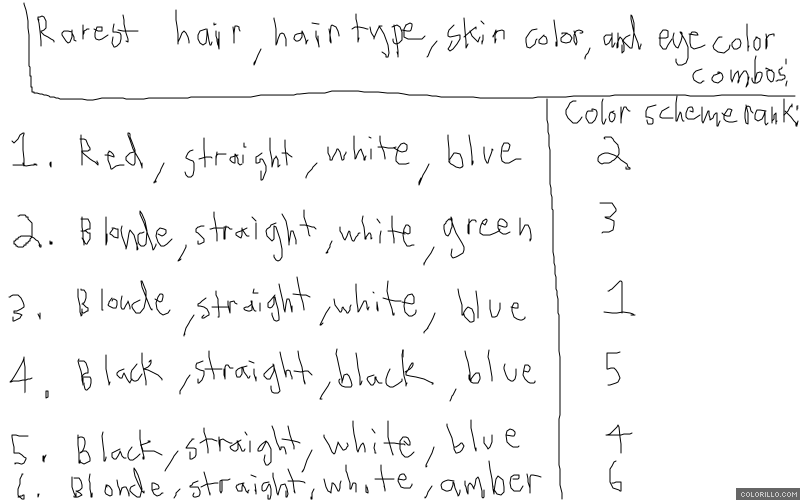 Rarest hair, hair type, skin color, and eye color
combos:
Color scheme rank:
1. Red, straight, white, blue 2
2. Blonde, straight, white, green 3
3. Blonde, straight, white, blue 1
4. Black, straight, black, blue 5
5. Black, straight, white, blue 4
6. Blonde, straight, white, amber 6
COLORILLO.COM